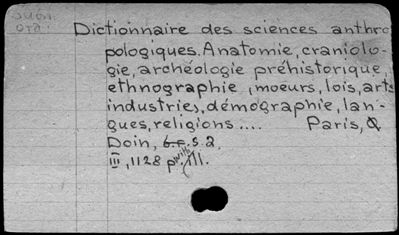 Subn.
Ora.
Dictionnaire des sciences anthro
pologiques. Anatomie, craniolo-
gie, archéologie préhistorique,
ethnographie, moeurs, lois, arts
industries, démographie, lan-
gues, religions .... Paris, O
Doin, s.a.
III, 1128 p. with ill.